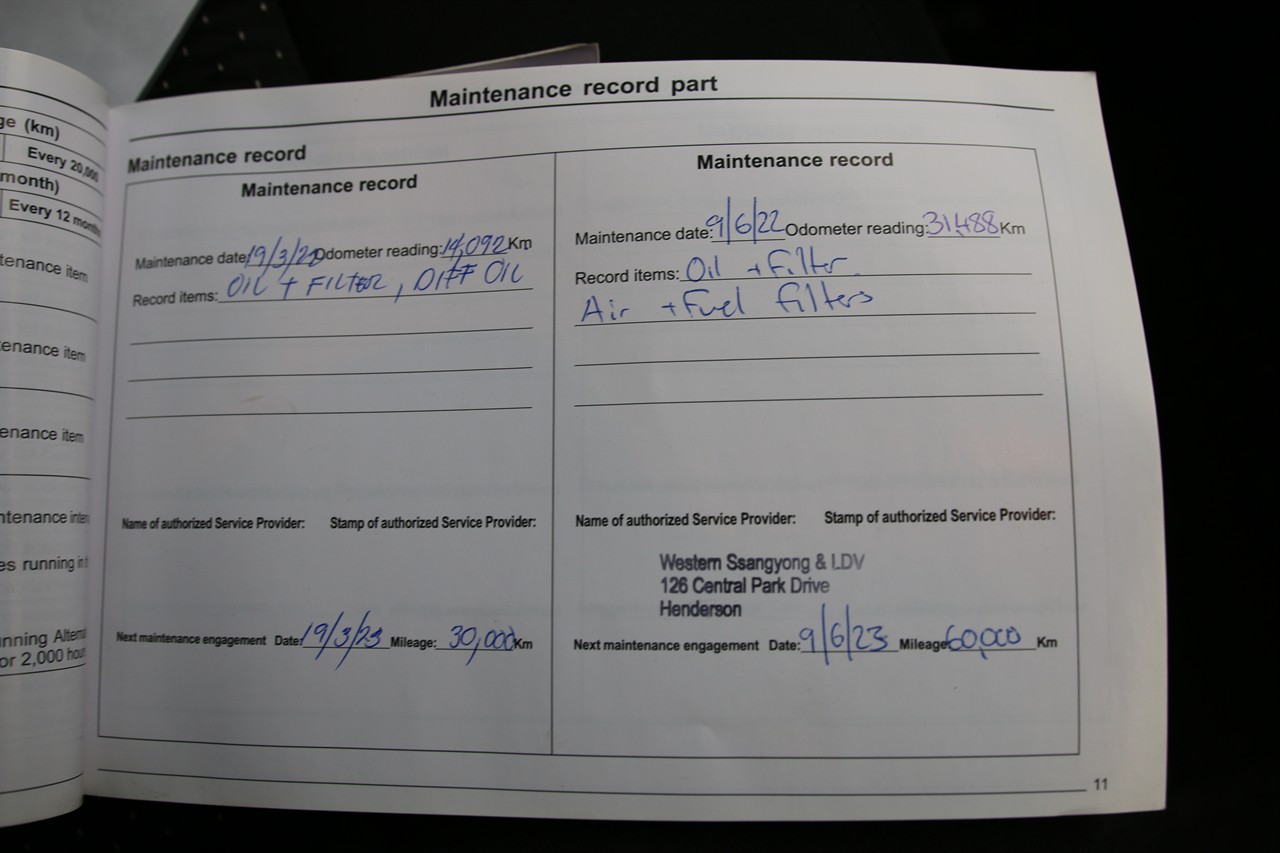 ge (km)
Every 20,000
month)
Every 12 month
tenance item
tenance item
enance item
ntenance inter
es running in
nning Altern
or 2,000 hou
Maintenance record part
Maintenance record
Maintenance record
Maintenance date: 19/3/22 Odometer reading: 14,092 Km
Record items: OIL + FILTER, DIFF OIL
Name of authorized Service Provider: Stamp of authorized Service Provider:
Next maintenance engagement Date: 19/3/23 Mileage: 30,000 Km
Maintenance record
Maintenance date: 9/6/22 Odometer reading: 31,488 Km
Record items: Oil + Filter
Air + Fuel filters
Name of authorized Service Provider: Stamp of authorized Service Provider:
Western Ssangyong & LDV
126 Central Park Drive
Henderson
Next maintenance engagement Date: 9/6/23 Mileage: 60,000 Km
11